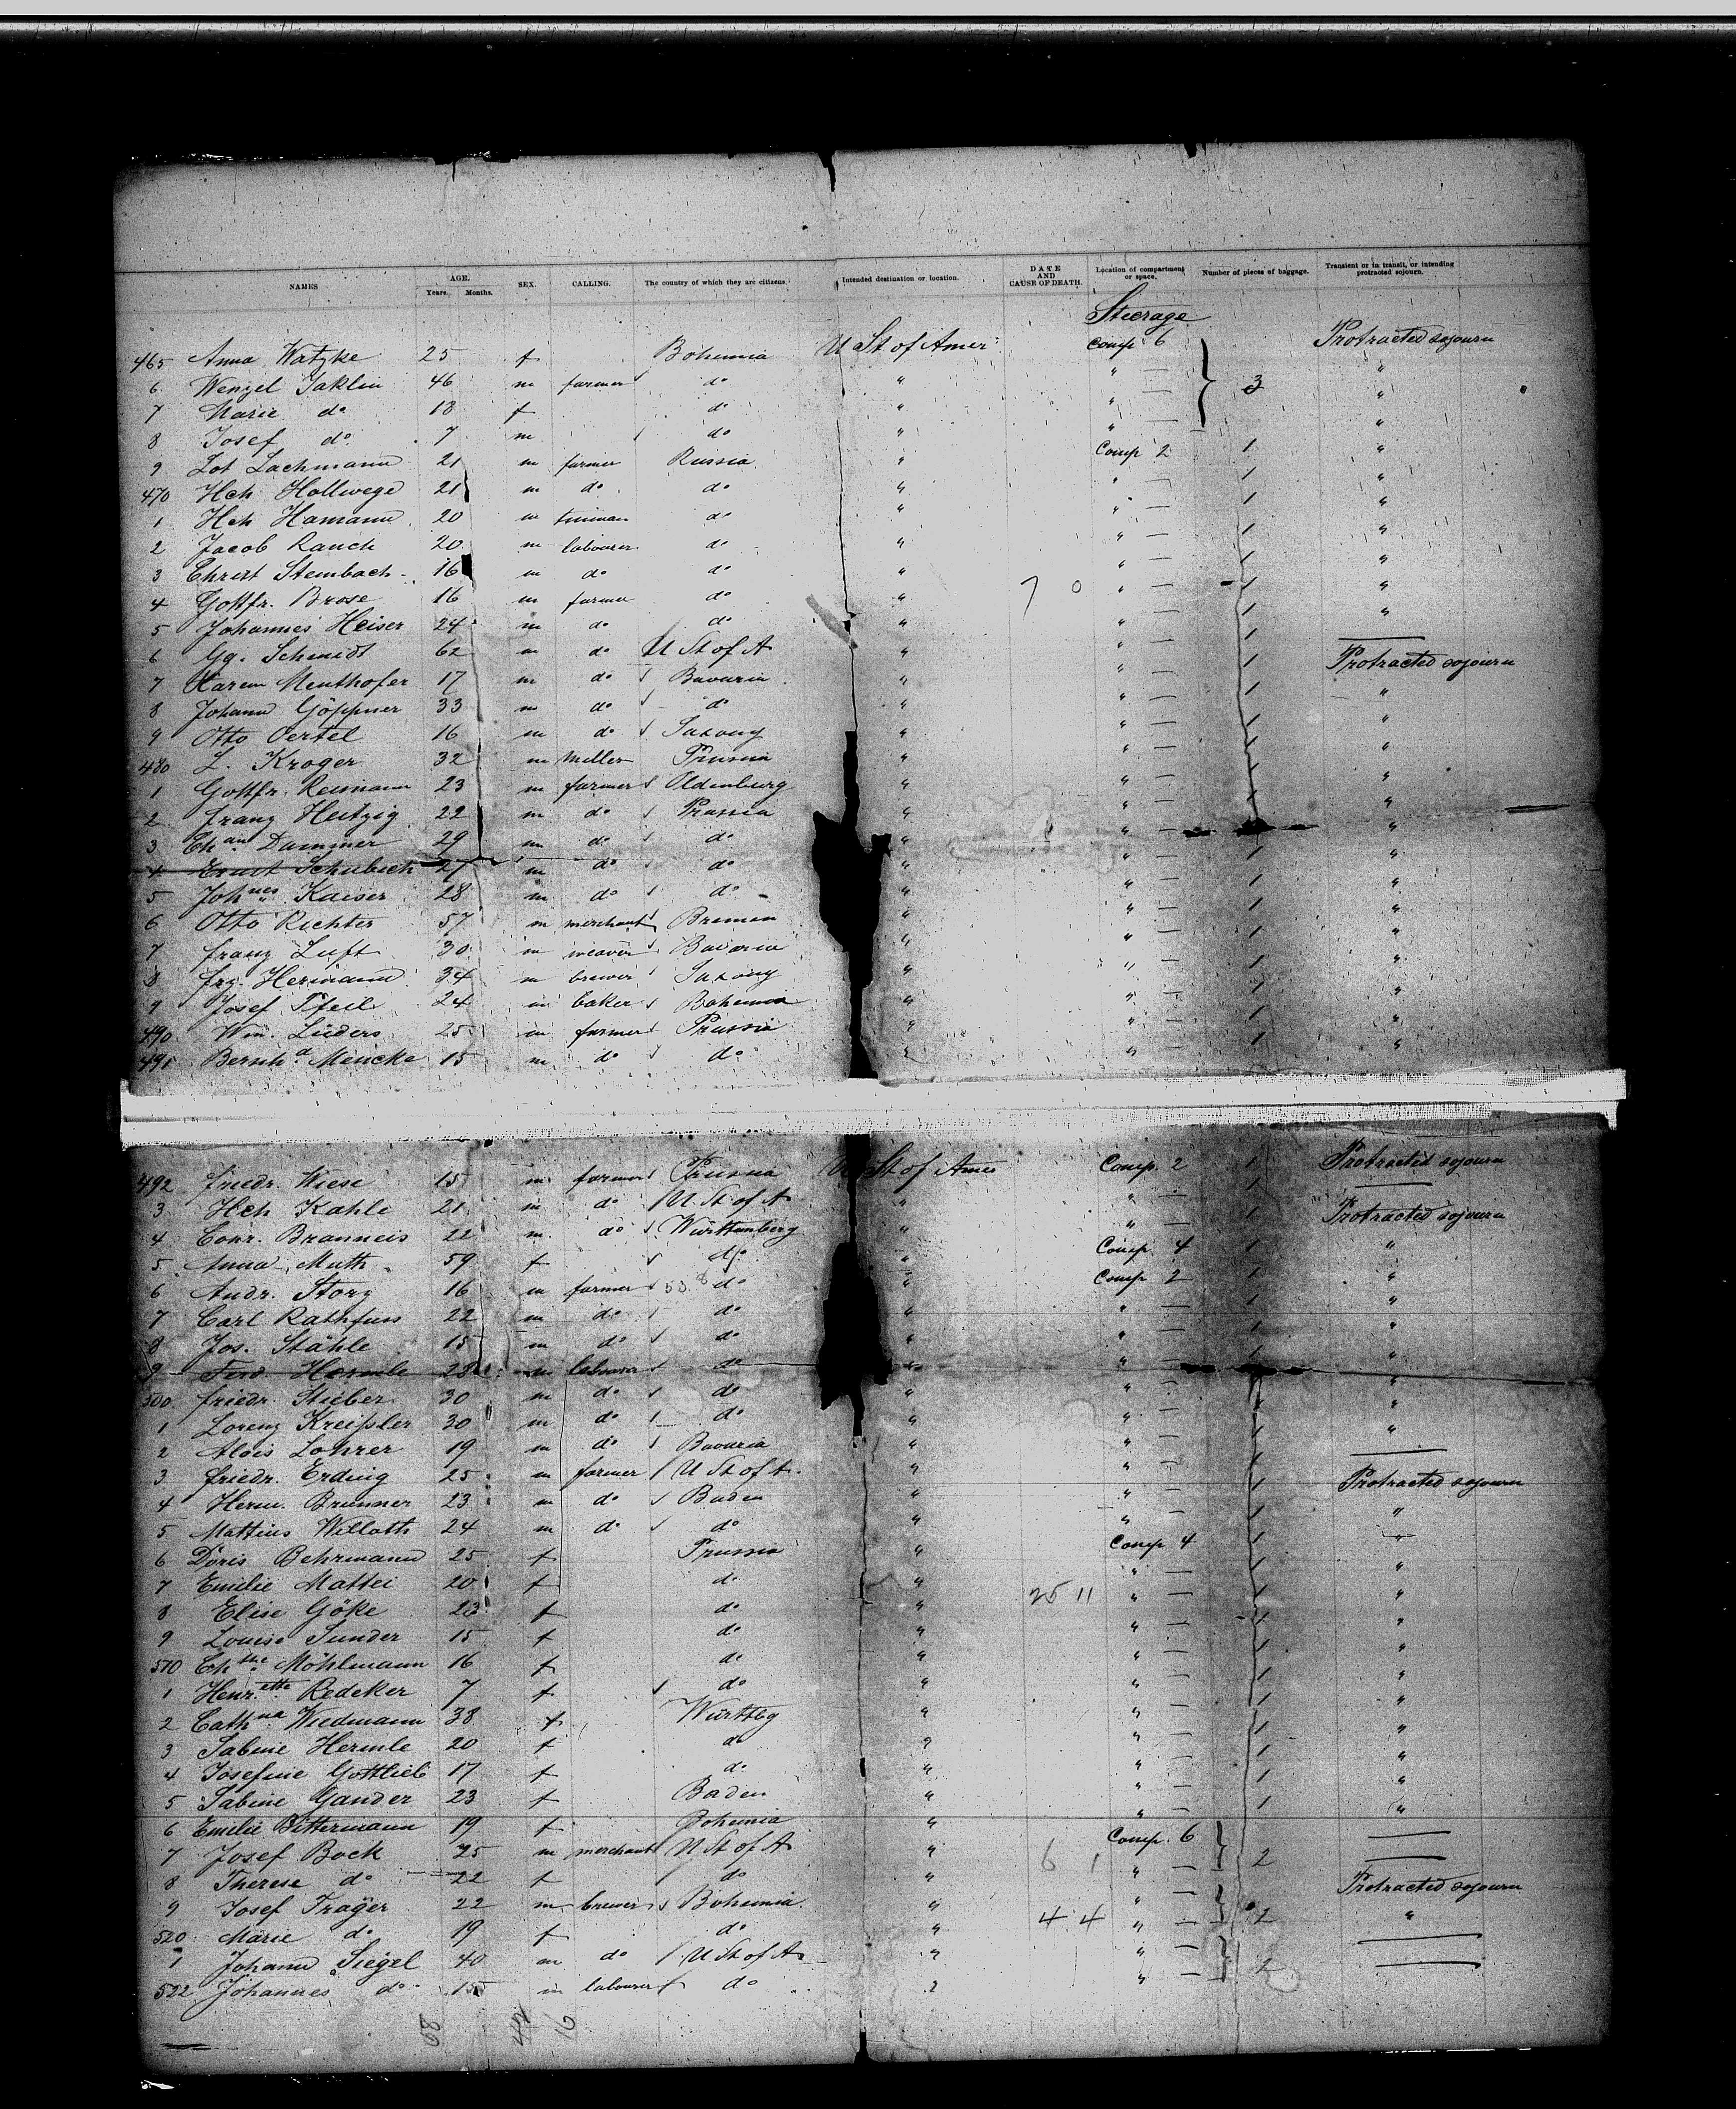 NAMES AGE. Years. Months. SEX. CALLING. The country of which they are citizens. Intended destination or location. DATE AND CAUSE OF DEATH. Location of compartment or space. Number of pieces of baggage. Transient or in transit, or intending protracted sojourn.
Steerage
465 Anna Watzke 25 f Bohemia U St of Amer. Comp. 6 Protracted sojourn
6 Wenzel Jaklin 46 m farmer do " " — 3 "
7 Marie do 18 f do " " — "
8 Josef do 7 m do " " — "
9 Lachmann 21 m farmer Russia " Comp 2 1 "
470 Hch Hollwege 21 m do do " " — 1 "
1 Hch Hamann 20 m do " " — 1 "
2 Jacob Rauch 20 m labourer do " " — 1 "
3 Christ Steinbach 16 m do do " " — 1 "
4 Gottfr. Brose 16 m farmer do " 7 0 " — 1 "
5 Johannes Heiser 24 m do do " " — 1 "
6 Gg. Schmidt 62 m do U St of A " " — 1 —
7 Menthofer 17 m do Bavaria " " — 1 Protracted sojourn
8 Johann Göppner 33 m do do " " — 1 "
9 Otto Oertel 16 m do Saxony " " — 1 "
480 L. Kroger 32 m miller Prussia " " — 1 "
1 Gottfr. Reimann 23 m farmer Oldenburg " " — 1 "
2 Franz Heitzig 22 m do Prussia " " — 1 "
3 Ch an Dammer 29 m do do " " — "
4 Ernst Schubich 27 m do do " " — 1 "
5 Joh nes Kaiser 28 m do do " " — 1 "
6 Otto Richter 57 m merchant Bremen " " — 1 "
7 Franz Luft 30 m weaver Bavaria " " — 1 "
8 Frz. Hermann 34 m brewer Saxony " " — 1 "
9 Josef Pfeil 24 m baker Bohemia " " — 1 "
490 Wm. Lüders 25 m farmer Prussia " " — 1 "
491 Bernh d Mencke 15 m do do " " — 1 "
492 Friedr. Wiese 15 m farmer Prussia U St of Amer Comp. 2 1 Protracted sojourn
3 Hch Kahle 21 m do U St of A " " — 1 —
4 Conr. Branneis 22 m do Württemberg " " — 1 Protracted sojourn
5 Anna Muth 59 f do " Comp. 4 1 "
6 Andr. Storz 16 m farmer do " Comp 2 1 "
7 Carl Rathfuss 22 m do do " " — 1 "
8 Jos. Stähle 15 m do do " " — 1 "
9 Ferd. Hermle 28 m labourer do " " — 1
500 Friedr. Stieber 30 m do do " " — "
1 Lorenz Kreissler 30 m do do " " — 1 "
2 Alois Lohrer 19 m do Bavaria " " — 1 "
3 Friedr. Erding 25 m farmer U St of A. " " — 1 —
4 Herm. Brunner 23 m do Baden " " — 1 Protracted sojourn
5 Mattius Willath 24 m do do " " — 1 "
6 Doris Behrmann 25 f Prussia " Comp 4 1 "
7 Emilie Mattei 20 f do " " — 1 "
8 Elise Göke 23 f do " 25 11 " — 1 "
9 Louise Sunder 15 f do " " — 1 "
510 Ch tne Möhlmann 16 f do " " — 1 "
1 Henr. ette Redeker 7 f do " " — 1 "
2 Cath na Wiedmann 38 f Württbg " " — 1 "
3 Sabine Hermle 20 f do " " — 1 "
4 Josefine Gottlieb 17 f do " " — 1 "
5 Sabine Gander 23 f Baden " " — 1 "
6 Emilie Bittermann 19 f Bohemia " " — 1 "
7 Josef Bock 25 m merchant U St of A " Comp. 6 2 —
8 Therese do 22 f do " 6 1 " — —
9 Josef Träger 22 m brewer Bohemia " " — 2 Protracted sojourn
520 Marie do 19 f do " 4 4 " — "
1 Johann Siegel 40 m do U St of A " " — 2 —
522 Johannes do 15 m labourer do " " — —
68 42 16